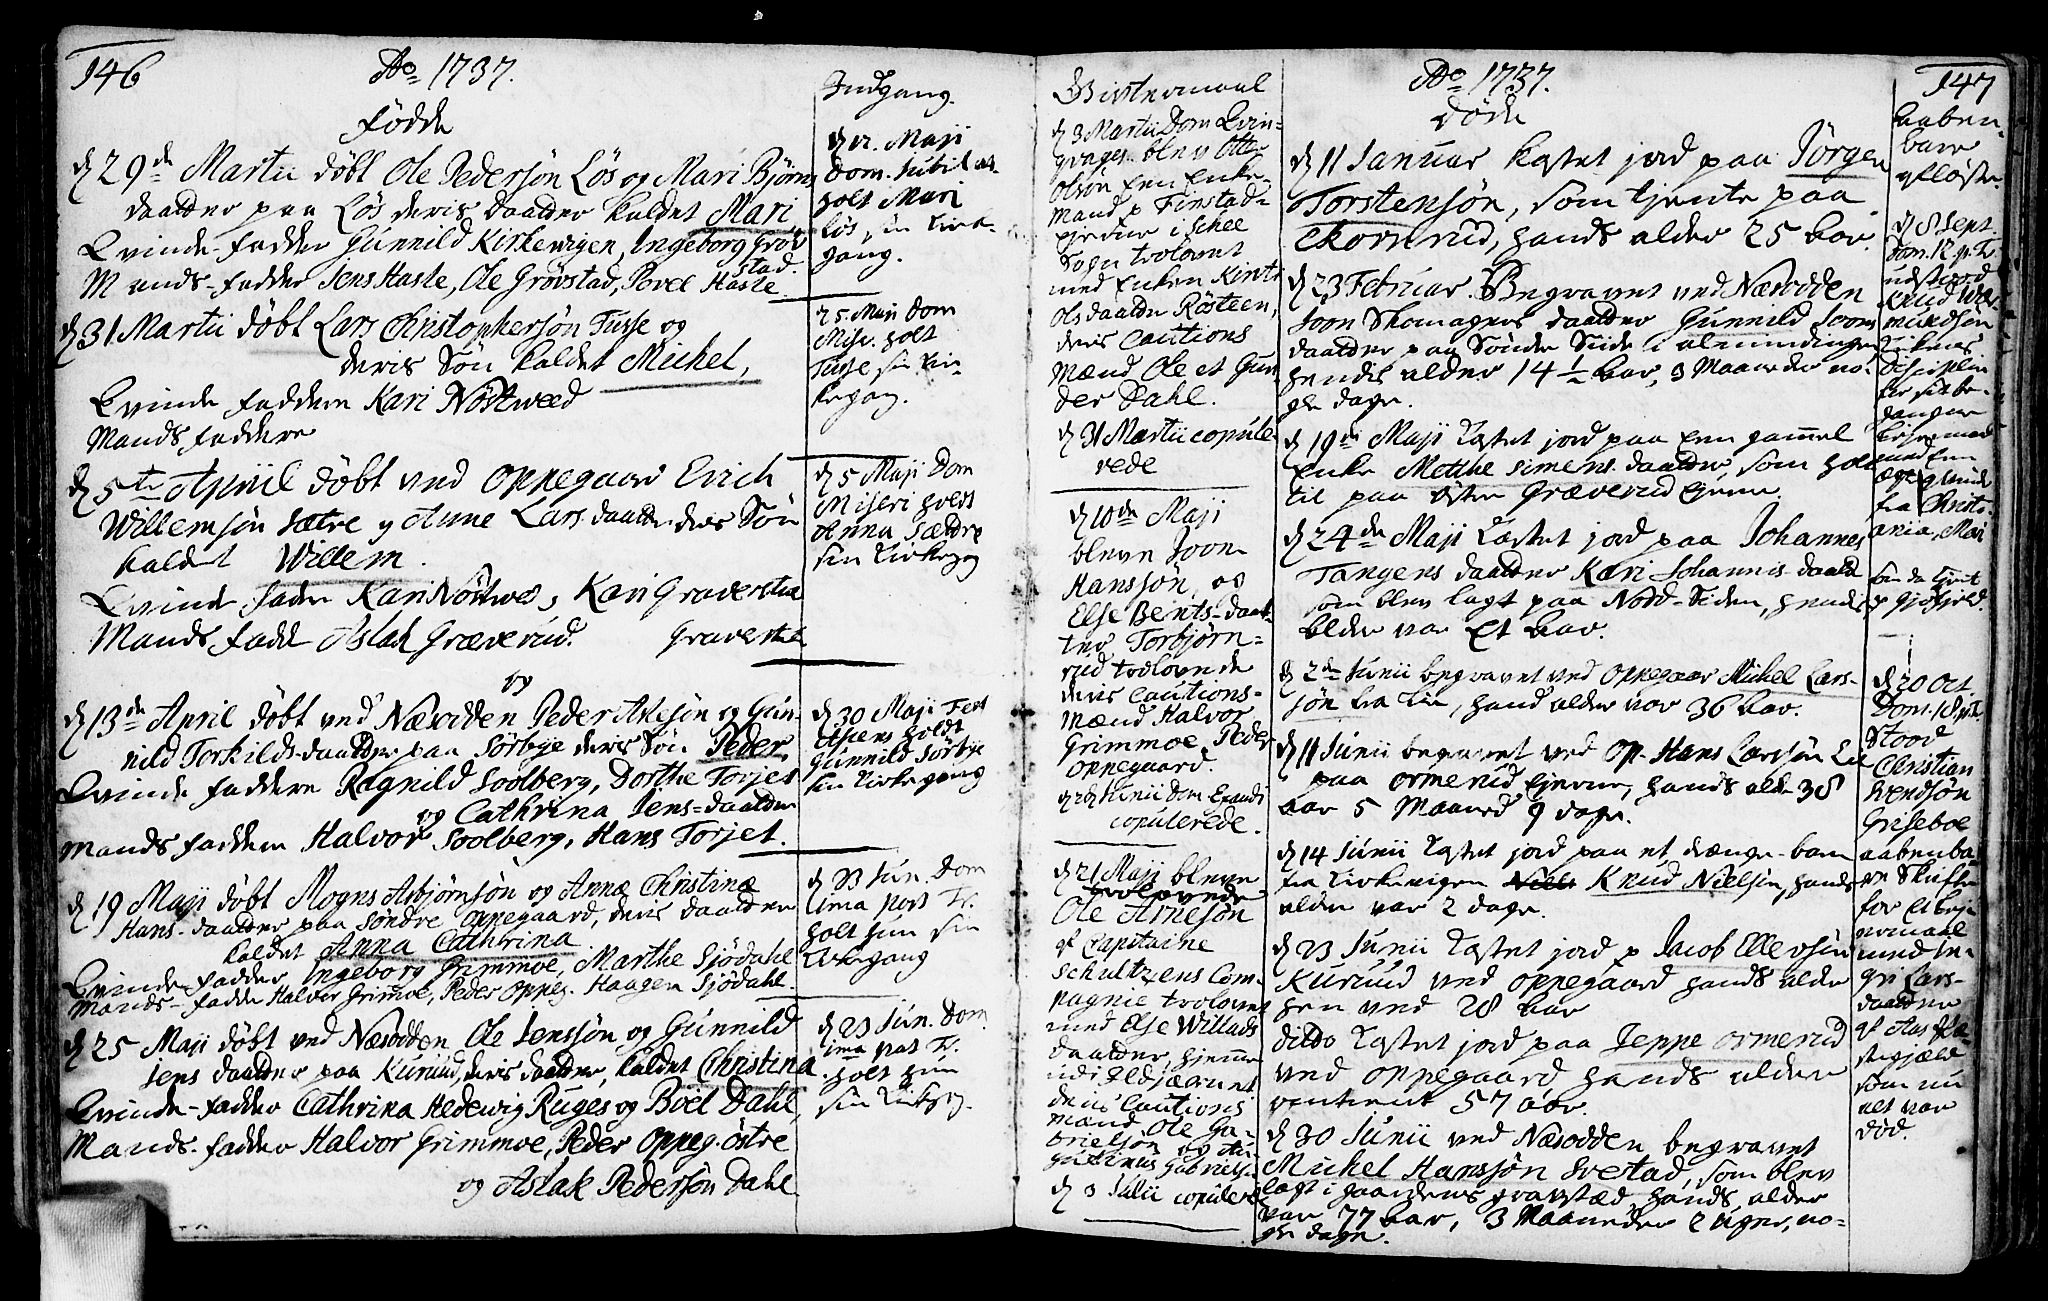 146
Ao 1737.
Fødde
d 29de Martii døbt Ole Pedersøn Løs og Mari Bjørns
daatder paa Løs deris daatder kaldet Mari
Qvinde-fadder Gunnild Kirkevigen, Ingeborg Grøv
stad.
Mands-fadder Jens Haste, Ole Grøvstad, Povel Haste
d 31 Martii døbt Lars Christophersøn Tusse og
deris Søn kaldet Michel,
Qvinde faddere Kari Nøstweed
Mands faddere
d 5te Apriil døbt ved Oppegaard Erich
Willemsøn Sætre og Anne Lars daatder deris Søn
kaldet Willem.
Qvinde fadder Kari Nøstwed, Kari Graverstea
Mands fadd Aslak Græverud. Graverstea
og
d 13de April døbt ved Næsodden Peder Akesøn og Gun-
nild Torkilds-daatder paa Sørbye deris Søn Peder
Qvinde faddere Ragnild Soolberg, Dorthe Torjet
og Cathrina Jens-daatder
Mands faddere Halvor Soolberg, Hans Torjet.
d 19 Maji døbt Mogns Asbjørnsøn og Anne Christine
Hans-daatder paa Søndre Oppegaard, deris daatder
kaldet Anna Cathrina
Qvinde-fadder Ingeborg Grimmoe, Marthe Sjødahl
Mands-fadder Halvor Grimmoe, Peder Oppeg. Haagen Sjødahl.
d 25 Maji døbt ved Næsodden Ole Jenssøn og Gunnild
Jens daatder paa Kurud, deris daatder, kaldet Christina
Qvinde-fadder Cathrina Hedewig Ruges og Boel Dahl,
Mands-fadder Halvor Grimmoe, Peder Oppeg. østre
og Aslak Pedersøn Dahl
Indgang.
d 12. Maji
Dom. Jubilat
holt Mari
Løs sin Kirke-
gang.
25 Maji Dom
Mise. holt
Tusse sin Kir-
kegag.
d 5 Maji Dom
Miseri holdt
Anna Sætdre
sin Kirkegag
d 30 Maji Fest
Ascens holdt
Gunnild Sørbye
sin Kirkegang
d 23 Jun. Dom
1ma post Tr.
holt hun sin
Kirkegang
d 23 Jun. Dom.
1ma post Tr.
holt hun
sin Kirkeg.
Givstermaal
d 3 Martii Dom Qvin-
qvages. blev Otter
Olsøn Een Enke-
mand p Finstad-
ejerne i Schee
Sogn trolovet
med Enken Kirsti
Ols daatder Røsteen,
deris Cautions
Mænd Ole et Gun
der Dahl.
d 31 Martii copule
rede
d 10de Maji
bleve Joon
Hanssøn, og
Else Bents-daat-
ter Torbjørn-
rud trolovede
deris Cautions-
Mænd Halvor
Grimmoe, Peder
Oppegaard.
d 2de Junii Dom Exaudi
copulerede.
d 21 Maji bleve
trolovede
Ole Arnesøn
af Capitaine
Schultzens Com-
pagnie trolovet
med Else Willads
daatder, hjemme
udi Kldjærnet
deris Cautions
mænd Ole Ga-
brielsøn og Au-
gustinus Gabriels.
d 3 Julii copulered
Ao 1737.
døde
d 11 Januar Kastet jord paa Jørgen
Torstensøn, som tjente paa
Skornrud, hands alder 25 aar.
d 23 Februar. Begravet ved Næsodden
Joon Skomagers daatder Gunnild Joons
daatder paa Søndre Siide i almindingen
hendis alder 14½ aar, 3 Maaneder no-
gle dage.
d 19de Maji Kastet jord paa Een gammel
Enke Metthe Simens daatder, som holt
til paa østre Græverud Ejerne.
d 24de Maji Kastet jord paa Johannes
Tangens daatder Kari Johannis daatd
som blev lagt paa Nord-Siden, hendis
alder var Et aar.
d 2de Junii begravet ved Oppegaar Michel Lars-
søn fra Lie, hans alder var 36 aar.
d 11 Junii begravet ved Op. Hans Larssøn Lie
paa Ormerud Ejerne, hands alder 38
aar 5 Maaned 9 dage.
d 14 Junii Kastet jord paa et drænge-barn
fra Kirkevigen Knud Nielsen, hands
alder var 2 dage.
d 23 Junii Kastet jord p Jacob Ellevsøn
Kurud ved Oppegaard hands alder
hen ved 28 aar
dito Kastet jord paa Jeppe Ormerud
ved Oppegaard hands alder
omtrent 57 aar.
d 30 Junii ved Næsodden begravet
Michel Hanssøn Svestad, som blev
lagt i gaardens gravstæd hands alder
var 77 aar, 3 Maaneder 2 uger, no-
gle dage.
147
Aaben-
bare
afløste.
d 8 Sept.
Dom. 12 p. Tr.
udstood
Knud
mundsøn
Kirkens
Disciplin
for sit be-
gangne
med Een
qvinde
fra Christi-
ania, Mari
p Gjøfjeld.
d 20 Oct
Dom. 18 p. Tr.
Stood
Christian
Svendsøn
Griseboe
aabenba-
re Skrifte
for Et leje
rmaal
med In-
gri Lars-
daatder
af Aas Præ-
stegjæld
som nu
alt var
død.